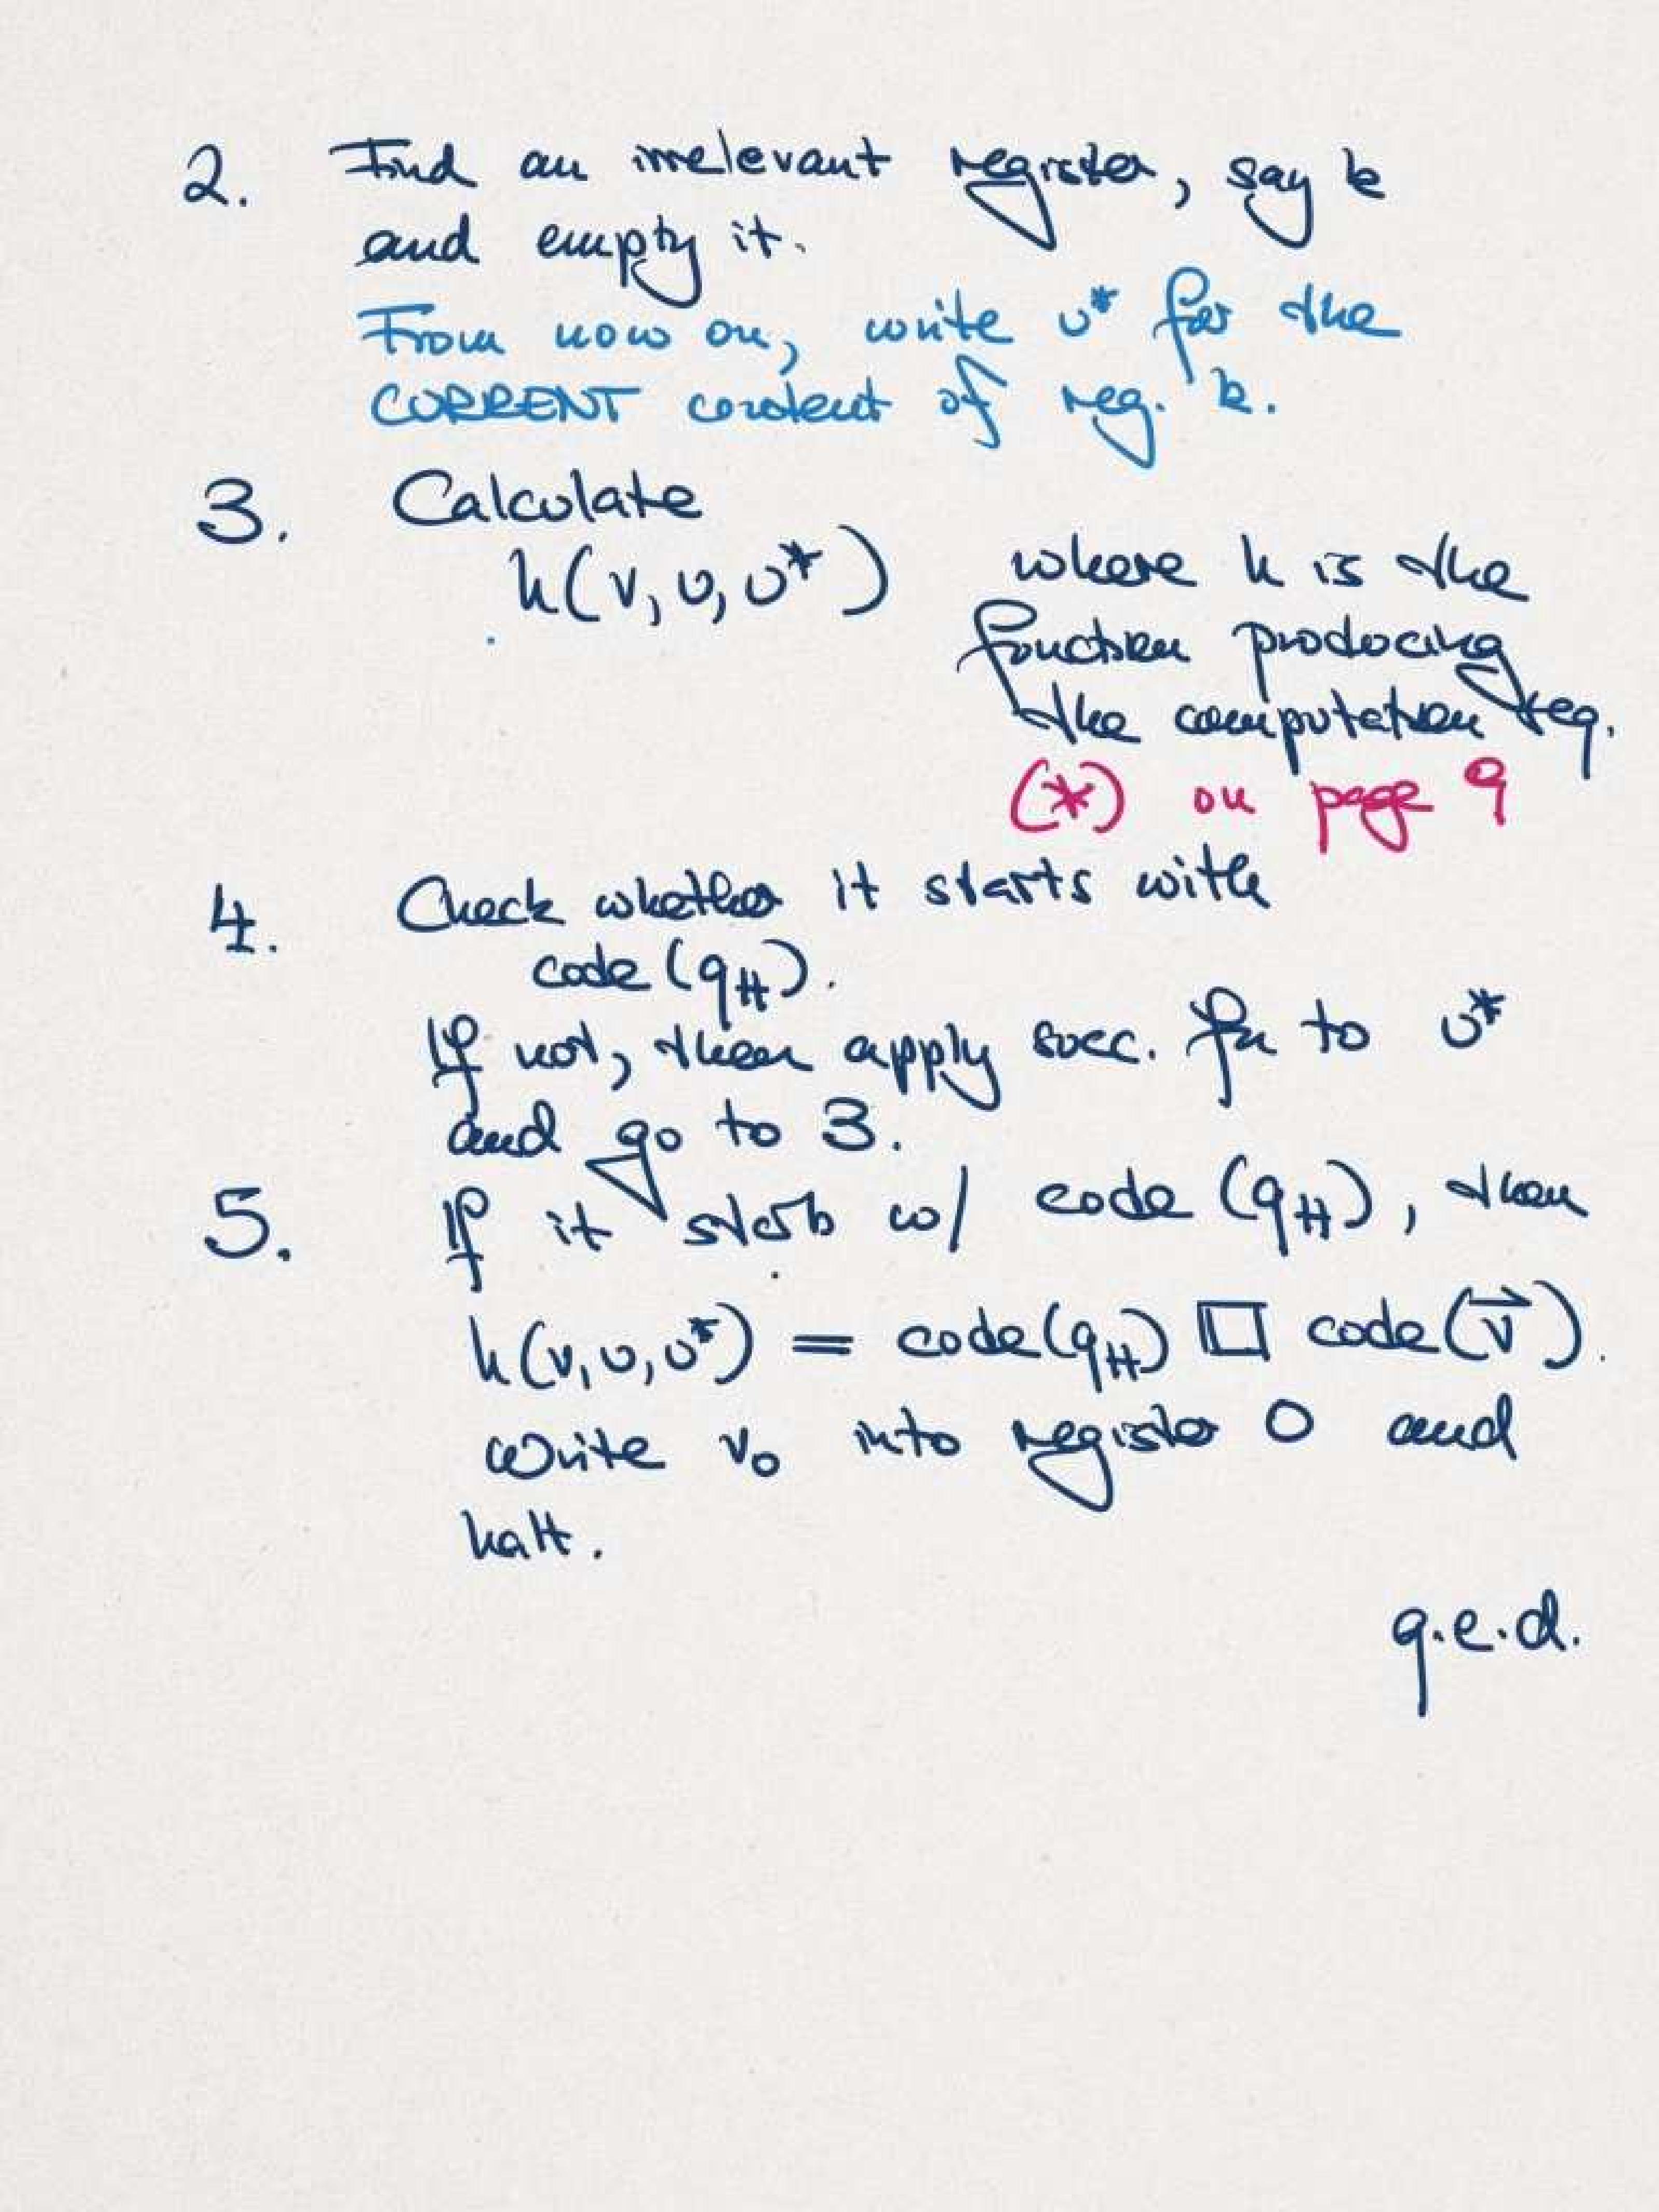 2. Find an irrelevant register, say k
and empty it.
From now on, write u* for the
CURRENT content of reg. k.
3. Calculate
h(v, u, u*) where h is the
function producing
the computation seq.
(*) on page 9
4. Check whether it starts with
code(q_H).
If not, then apply succ. fn to u*
and go to 3.
5. If it starts w/ code (q_H), then
h(v, u, u*) = code(q_H) □ code(v⃗).
Write v₀ into register 0 and
halt.
q.e.d.